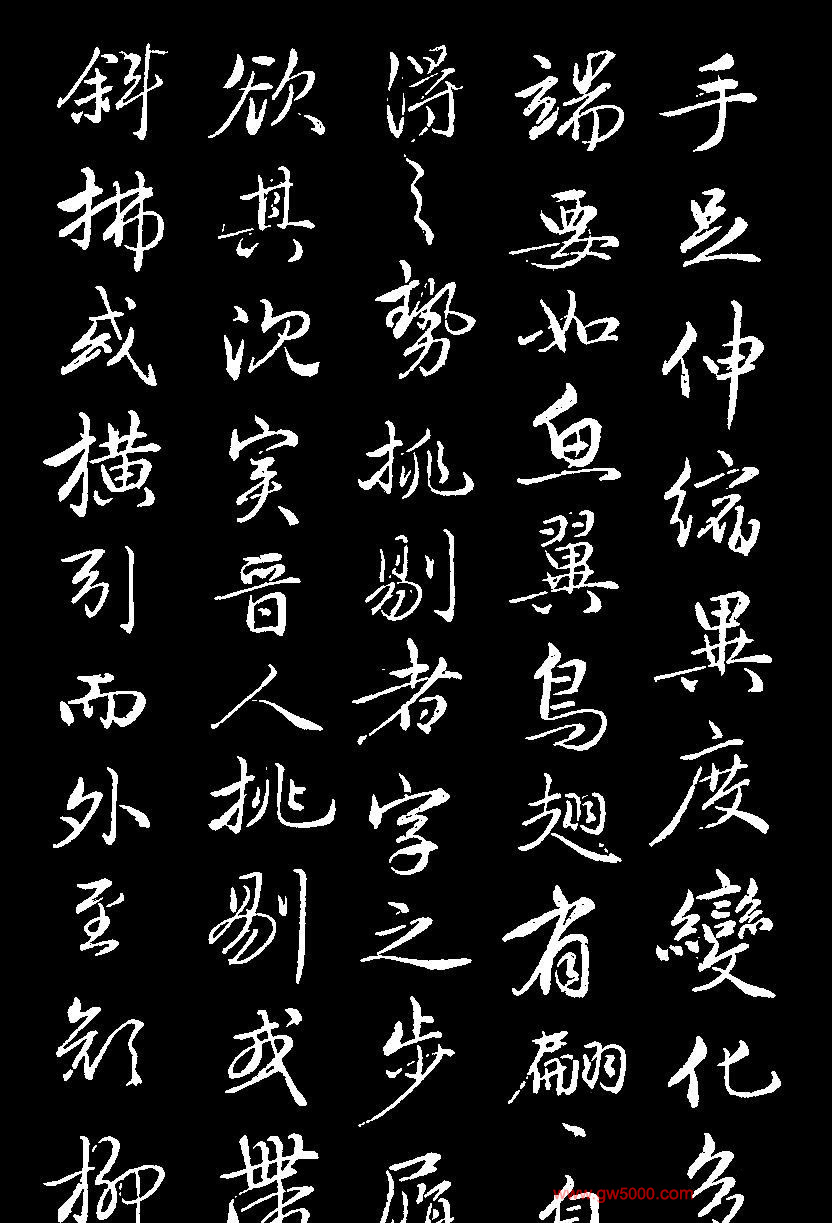 手足伸縮異度變化多
端要如魚翼鳥翅有翩〻自
得之勢挑剔者字之步履
欲其沉實晉人挑剔或帶
斜拂或橫引而外至顔柳
www.gw5000.com